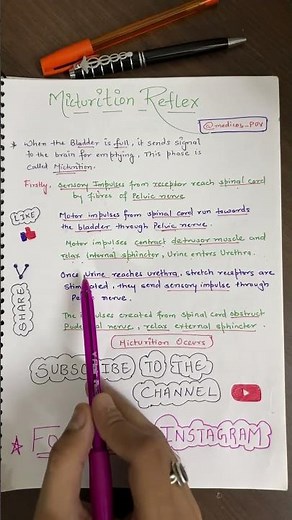 Micturition Reflex
@medicos_pov
When the Bladder is full, it sends signal
to the brain for emptying. This phase is
called Micturition.
Firstly, Sensory Impulses from receptor reach spinal cord
by fibres of Pelvic nerve.
LIKE
Motor impulses from spinal cord run towards
the bladder through Pelvic nerve.
Motor impulses contract detrusor muscle and
relax Internal sphincter, Urine enters Urethra.
SHARE
Once Urine reaches urethra, stretch receptors are
stimulated, they send sensory impulse through
Pelvic nerve.
The impulses created from Spinal cord obstruct
Pudendal nerve, relax external sphincter.
Micturition Occurs
SUBSCRIBE TO THE
CHANNEL
INSTAGRAM